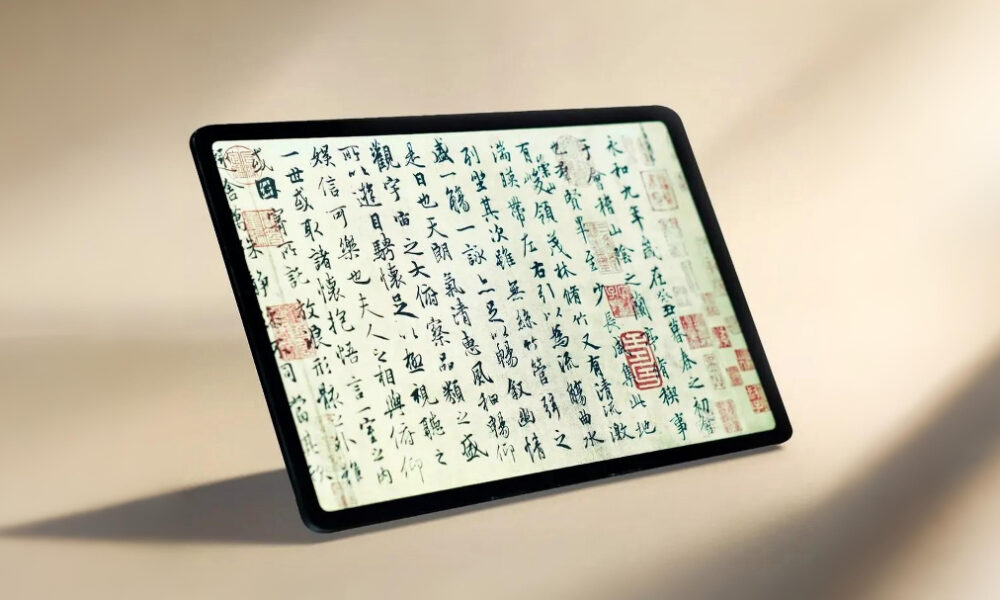 永和九年歲在癸丑暮春之初會
于會稽山陰之蘭亭脩禊事
也羣賢畢至少長咸集此地
有崇山峻領茂林脩竹又有清流激
湍暎帶左右引以為流觴曲水
列坐其次雖無絲竹管弦之
盛一觴一詠亦足以暢敘幽情
是日也天朗氣清惠風和暢仰
觀宇宙之大俯察品類之盛
所以遊目騁懷足以極視聽之
娛信可樂也夫人之相與俯仰
一世或取諸懷抱悟言一室之內
或因寄所託放浪形骸之外雖
舍萬殊靜不同當其欣